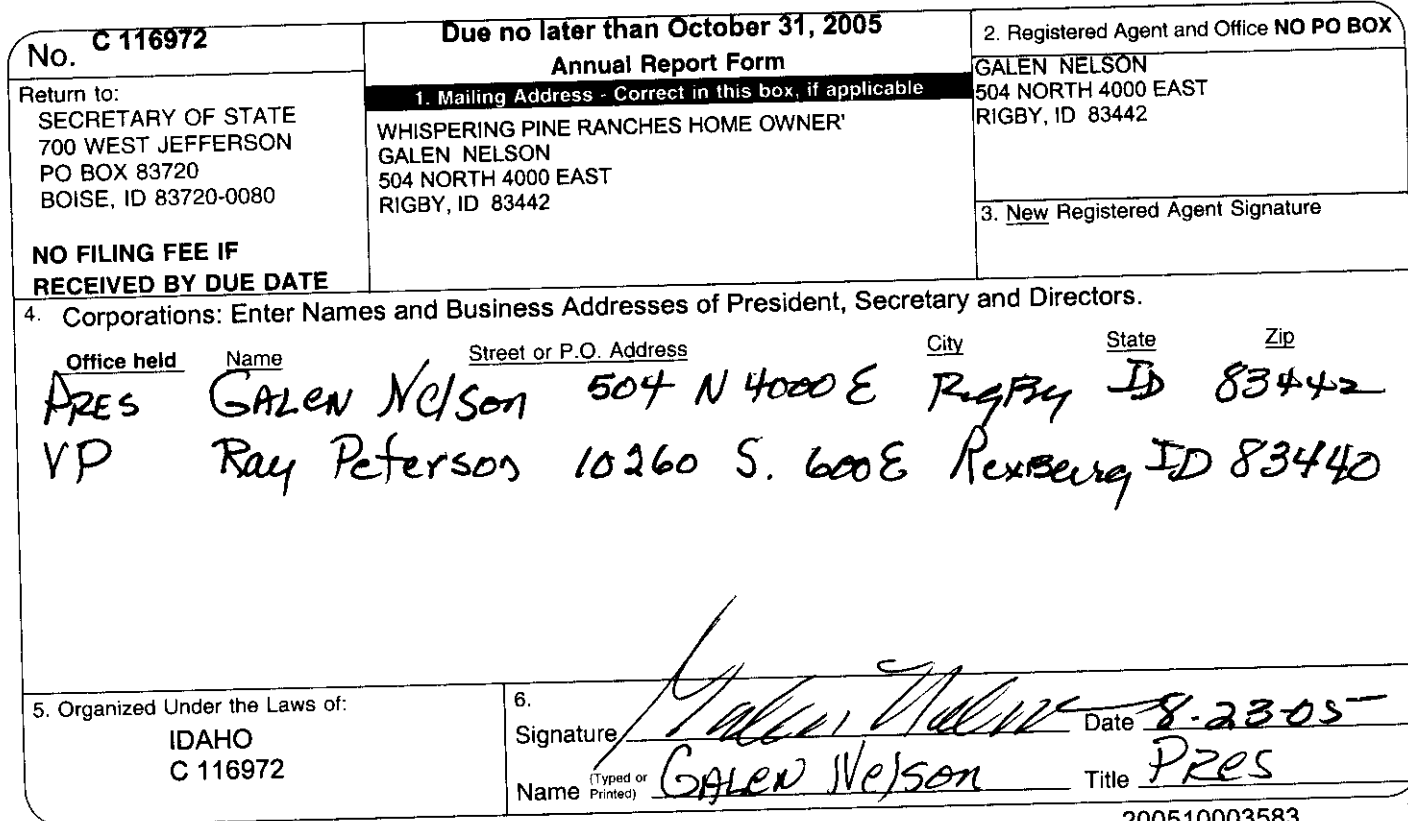 No. C 116972
Return to:
SECRETARY OF STATE
700 WEST JEFFERSON
PO BOX 83720
BOISE, ID 83720-0080
NO FILING FEE IF
RECEIVED BY DUE DATE
Due no later than October 31, 2005
Annual Report Form
1. Mailing Address - Correct in this box, if applicable
WHISPERING PINE RANCHES HOME OWNER'
GALEN NELSON
504 NORTH 4000 EAST
RIGBY, ID 83442
2. Registered Agent and Office NO PO BOX
GALEN NELSON
504 NORTH 4000 EAST
RIGBY, ID 83442
3. New Registered Agent Signature
4. Corporations: Enter Names and Business Addresses of President, Secretary and Directors.
Office held Name Street or P.O. Address City State Zip
PRES GALEN Nelson 504 N 4000 E RigBy ID 83442
VP Ray Peterson 10260 S. 600 E RexBurg ID 83440
5. Organized Under the Laws of:
IDAHO
C 116972
6.
Signature Galen Nelson Date 8-23-05
Name (Typed or Printed) GALEN Nelson Title PRes
200510003583